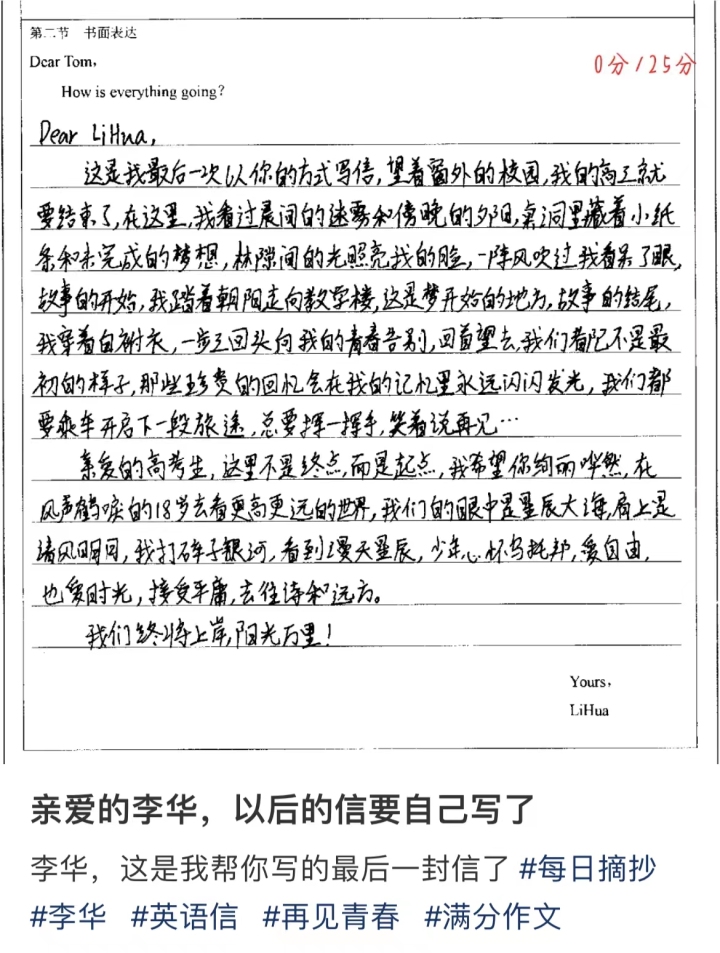 第二节 书面表达
Dear Tom,
0分/25分
How is everything going?
Dear LiHua,
这是我最后一次以你的方式写信,望着窗外的校园,我的高三就
要结束了,在这里,我看过晨间的迷雾和傍晚的夕阳,桌洞里藏着小纸
条和未完成的梦想,林隙间的光照亮我的脸,一阵风吹过我看呆了眼,
故事的开始,我踏着朝阳走向教学楼,这是梦开始的地方,故事的结尾,
我穿着白衬衣,一步三回头向我的青春告别,回首望去,我们都已不是最
初的样子,那些珍贵的回忆会在我的记忆里永远闪闪发光,我们都
要乘车开启下一段旅途,总要挥一挥手,笑着说再见…
亲爱的高考生,这里不是终点,而是起点,我希望你绚丽哗然,在
风声鹤唳的18岁去看更高更远的世界,我们的眼中是星辰大海,肩上是
清风明月,我打碎了银河,看到漫天星辰,少年心怀乌托邦,爱自由,
也爱时光,接受平庸,去往诗和远方。
我们终将上岸,阳光万里!
Yours,
LiHua
亲爱的李华，以后的信要自己写了
李华，这是我帮你写的最后一封信了 #每日摘抄
#李华 #英语信 #再见青春 #满分作文